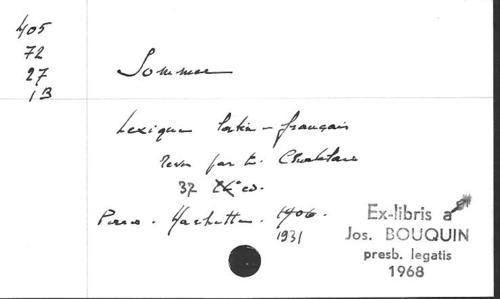 405
72
27
1B
Sommer
Lexique latin-français
revu par E. Chatelain
37 è éd.
Paris. Hachette. 1906.
1931
Ex-libris a
Jos. BOUQUIN
presb. legatis
1968